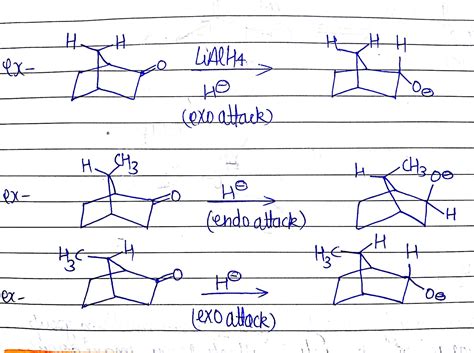 ex- H H O LiAlH4 H⊖ (exo attack) H H H O⊖
ex- H CH3 O H⊖ (endo attack) H CH3 O⊖ H
ex- H3C H O H⊖ (exo attack) H3C H H O⊖